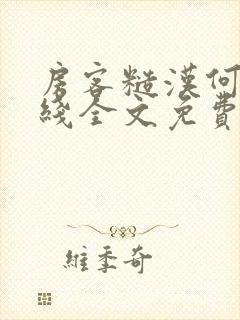 房客糙漢何
綫全文免費
維季奇